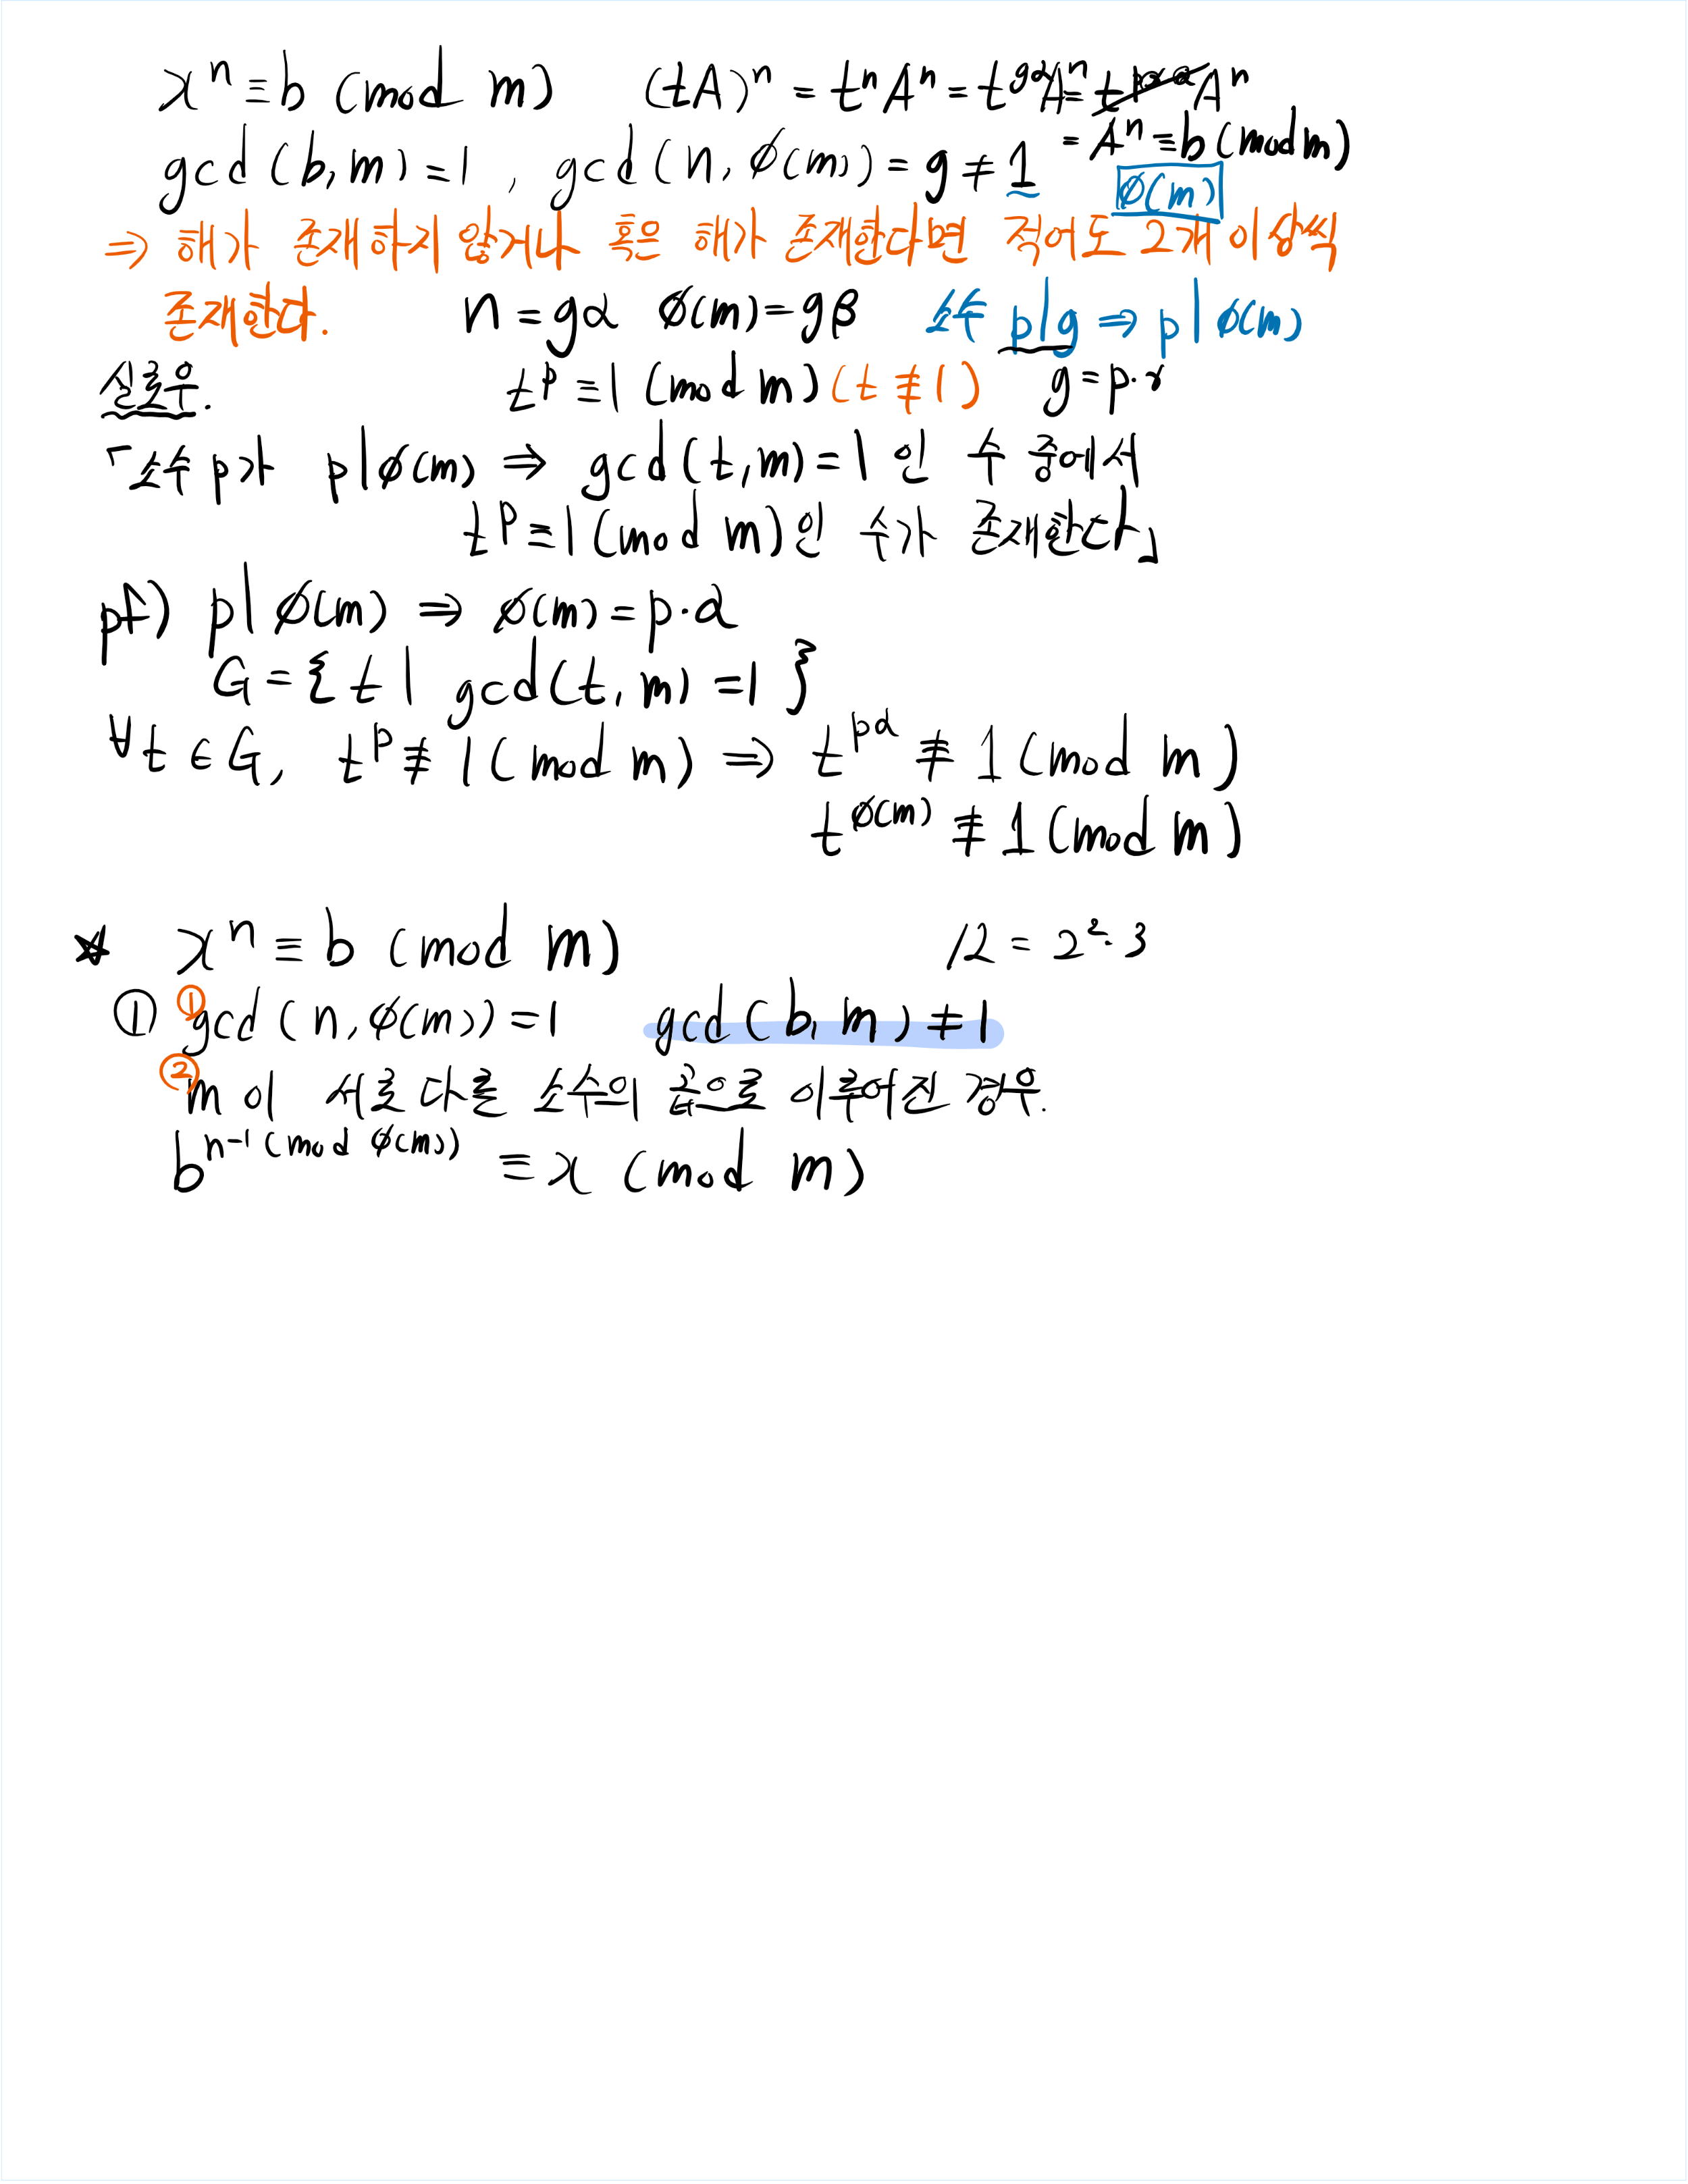 xⁿ ≡ b (mod m)   (tA)ⁿ = tⁿAⁿ = t^{gα}Aⁿ = Aⁿ
gcd(b, m) = 1 , gcd(n, ∅(m)) = g ≠ 1   = Aⁿ ≡ b (mod m)
∅(m)
⇒ 해가 존재하지 않거나 혹은 해가 존재한다면 적어도 2개 이상씩
존재한다.   n = gα   ∅(m) = gβ   소수 p|g ⇒ p|∅(m)
실로우.   t^p ≡ 1 (mod m) (t ≢ 1)   g = p·r
「소수 p가 p|∅(m) ⇒ gcd(t, m) = 1 인 수 중에서
t^p ≡ 1 (mod m)인 수가 존재한다」
pf) p|∅(m) ⇒ ∅(m) = p·α
G = { t | gcd(t, m) = 1 }
∀t ∈ G, t^p ≢ 1 (mod m) ⇒ t^{pα} ≢ 1 (mod m)
t^{∅(m)} ≢ 1 (mod m)
☆ xⁿ ≡ b (mod m)   12 = 2²·3
① ① gcd(n, ∅(m)) = 1   gcd(b, m) ≠ 1
② m이 서로 다른 소수의 곱으로 이루어진 경우.
b^{n⁻¹ (mod ∅(m))} ≡ x (mod m)